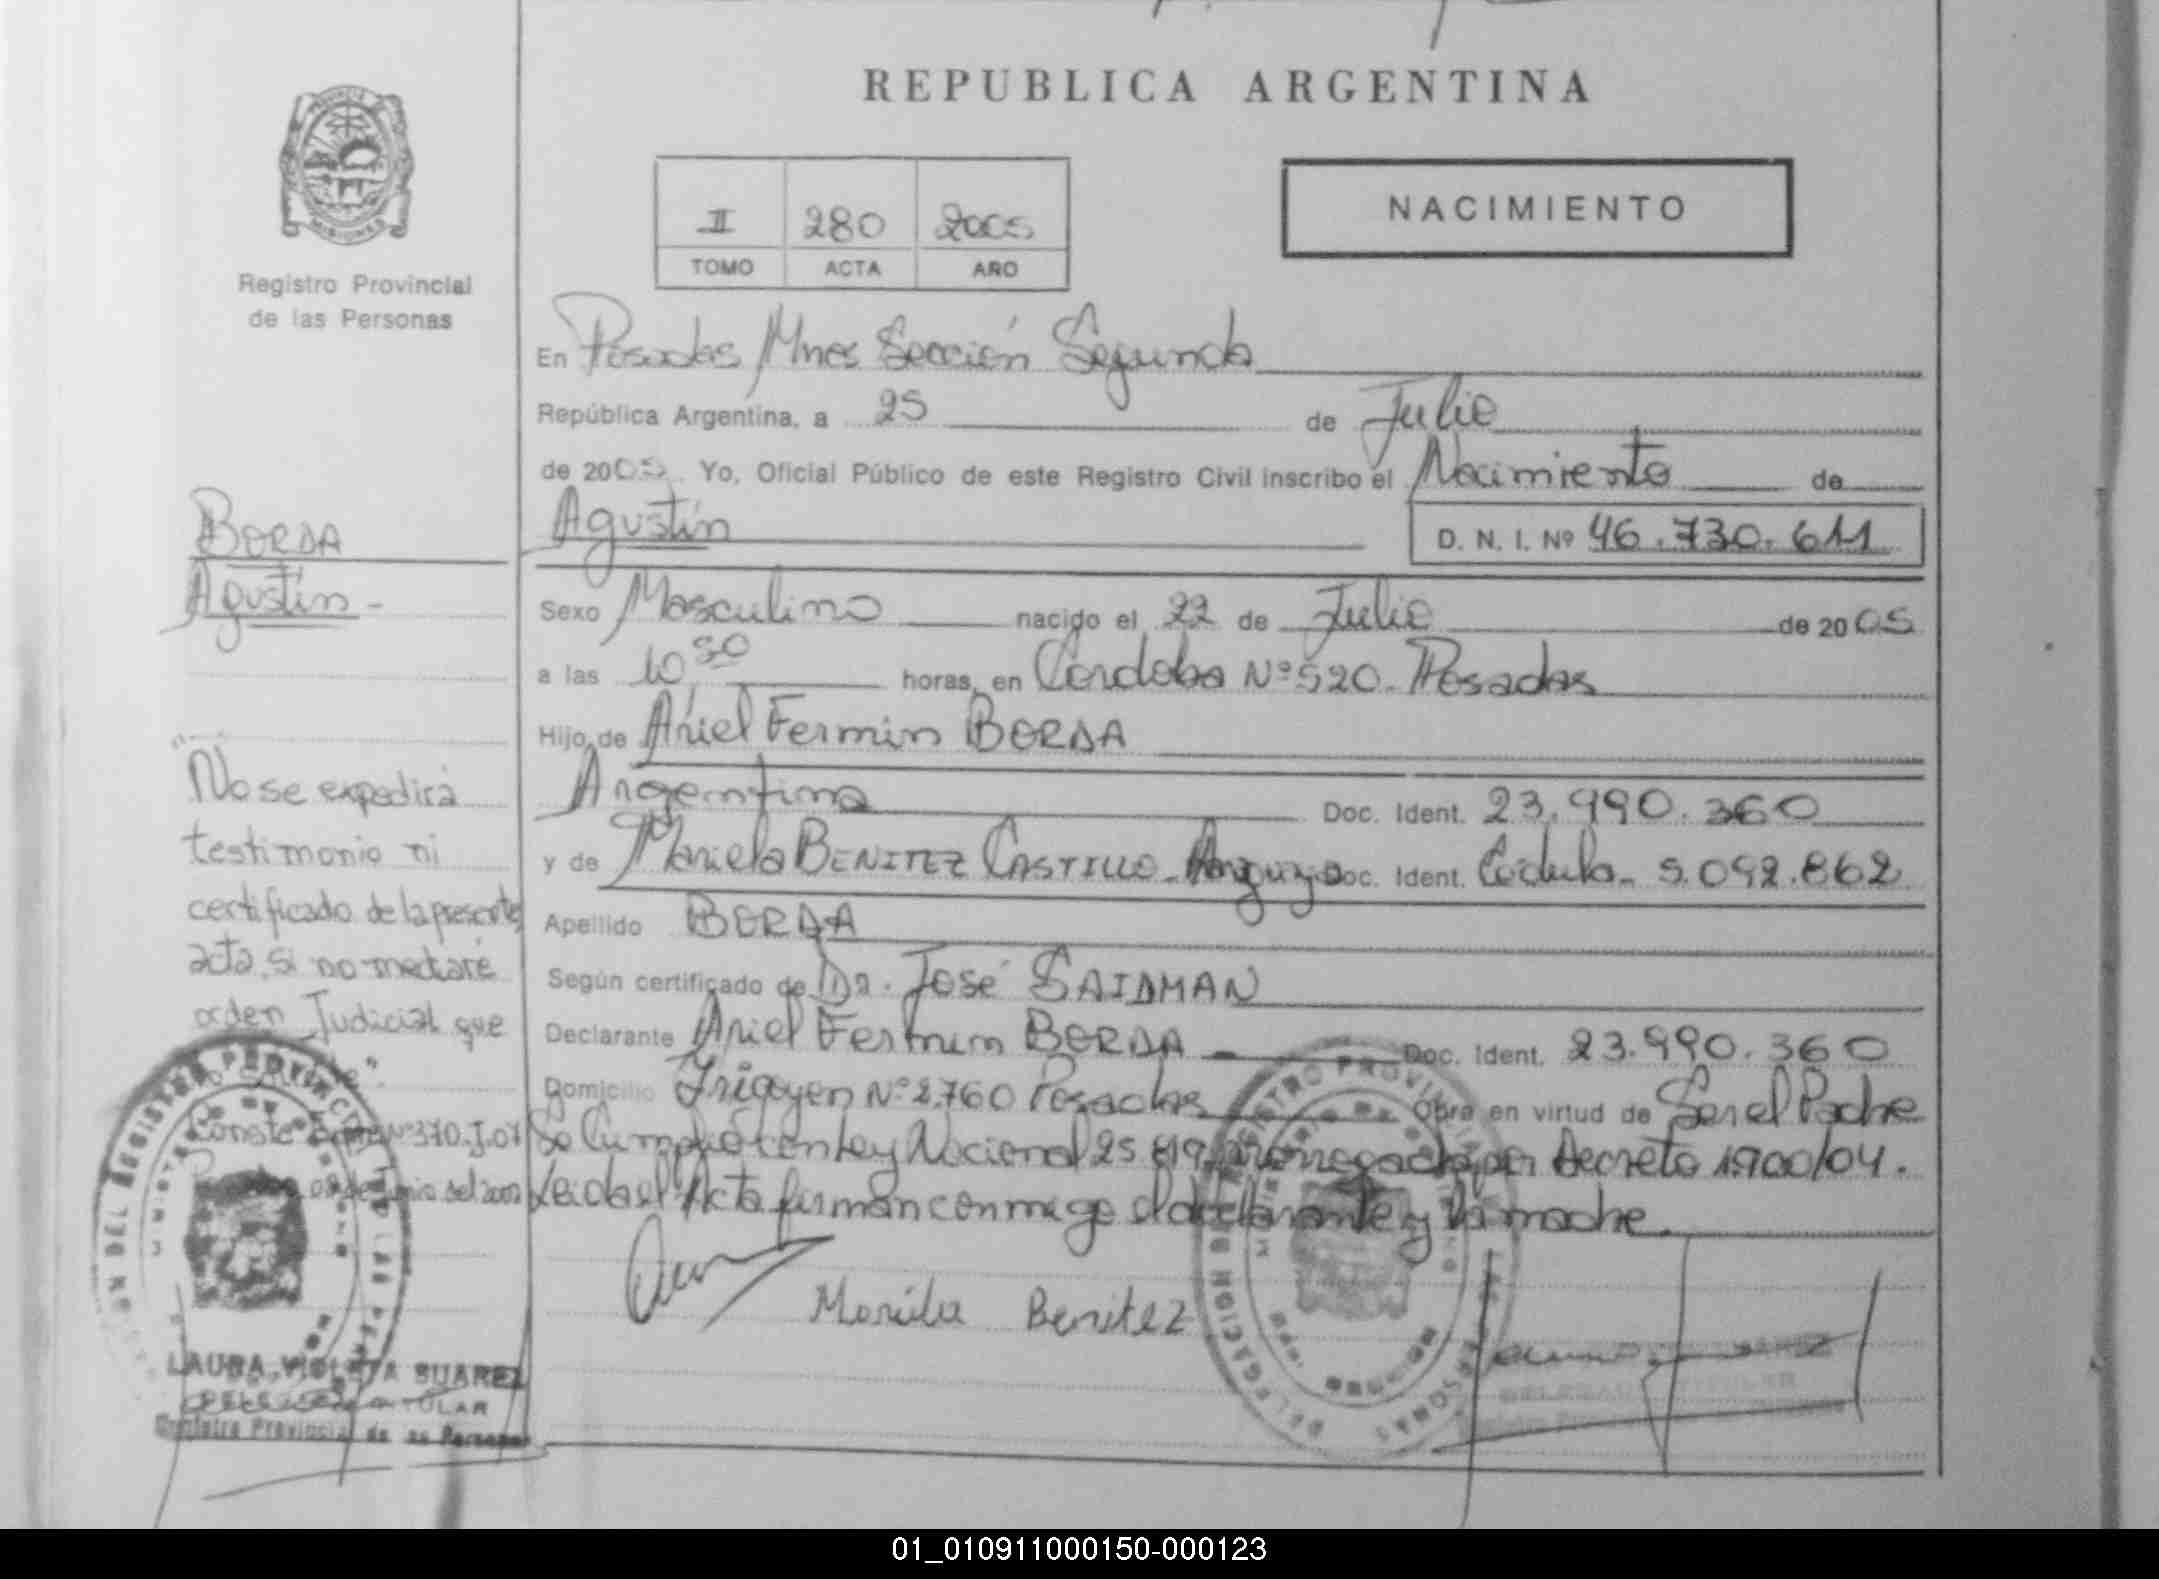 REPUBLICA ARGENTINA
Registro Provincial
de las Personas
II 280 2005
TOMO ACTA AÑO
NACIMIENTO
En Posadas Mnes Sección Segunda
República Argentina, a 25 de Julio
de 2005 Yo, Oficial Público de este Registro Civil inscribo el Nacimiento de
Agustín
D. N. I. Nº 46.730.611
BORDA
Agustín -
Sexo Masculino nacido el 22 de Julio de 2005
a las 10 30 horas, en Córdoba Nº 520. Posadas
Hijo de Ariel Fermin BORDA
Argentina Doc. Ident. 23.990.360
y de Mariela BENITEZ CASTILLO - Doc. Ident. Cédula - 5.092.862
Apellido BORDA
Según certificado de Dr. José SAIDMAN
Declarante Ariel Fermin BORDA Doc. Ident. 23.990.360
Domicilio Irigoyen Nº 2.760 Posadas Obra en virtud de Ser el Padre
Se Cumplió con Ley Nacional 25 819 prorrogada por Decreto 1.900/04.
Leida el Acta firman conmigo el declarante y la madre.
Mariela Benitez
"No se expedirá
testimonio ni
certificado de la presente
acta, si no mediare
orden Judicial que
Conste Nº 370.J.07
LAURA VIOLETA SUAREZ
DELEGADA TITULAR
Registro Provincial de las Personas
REGISTRO PROVINCIAL DE LAS PERSONAS
01_010911000150-000123